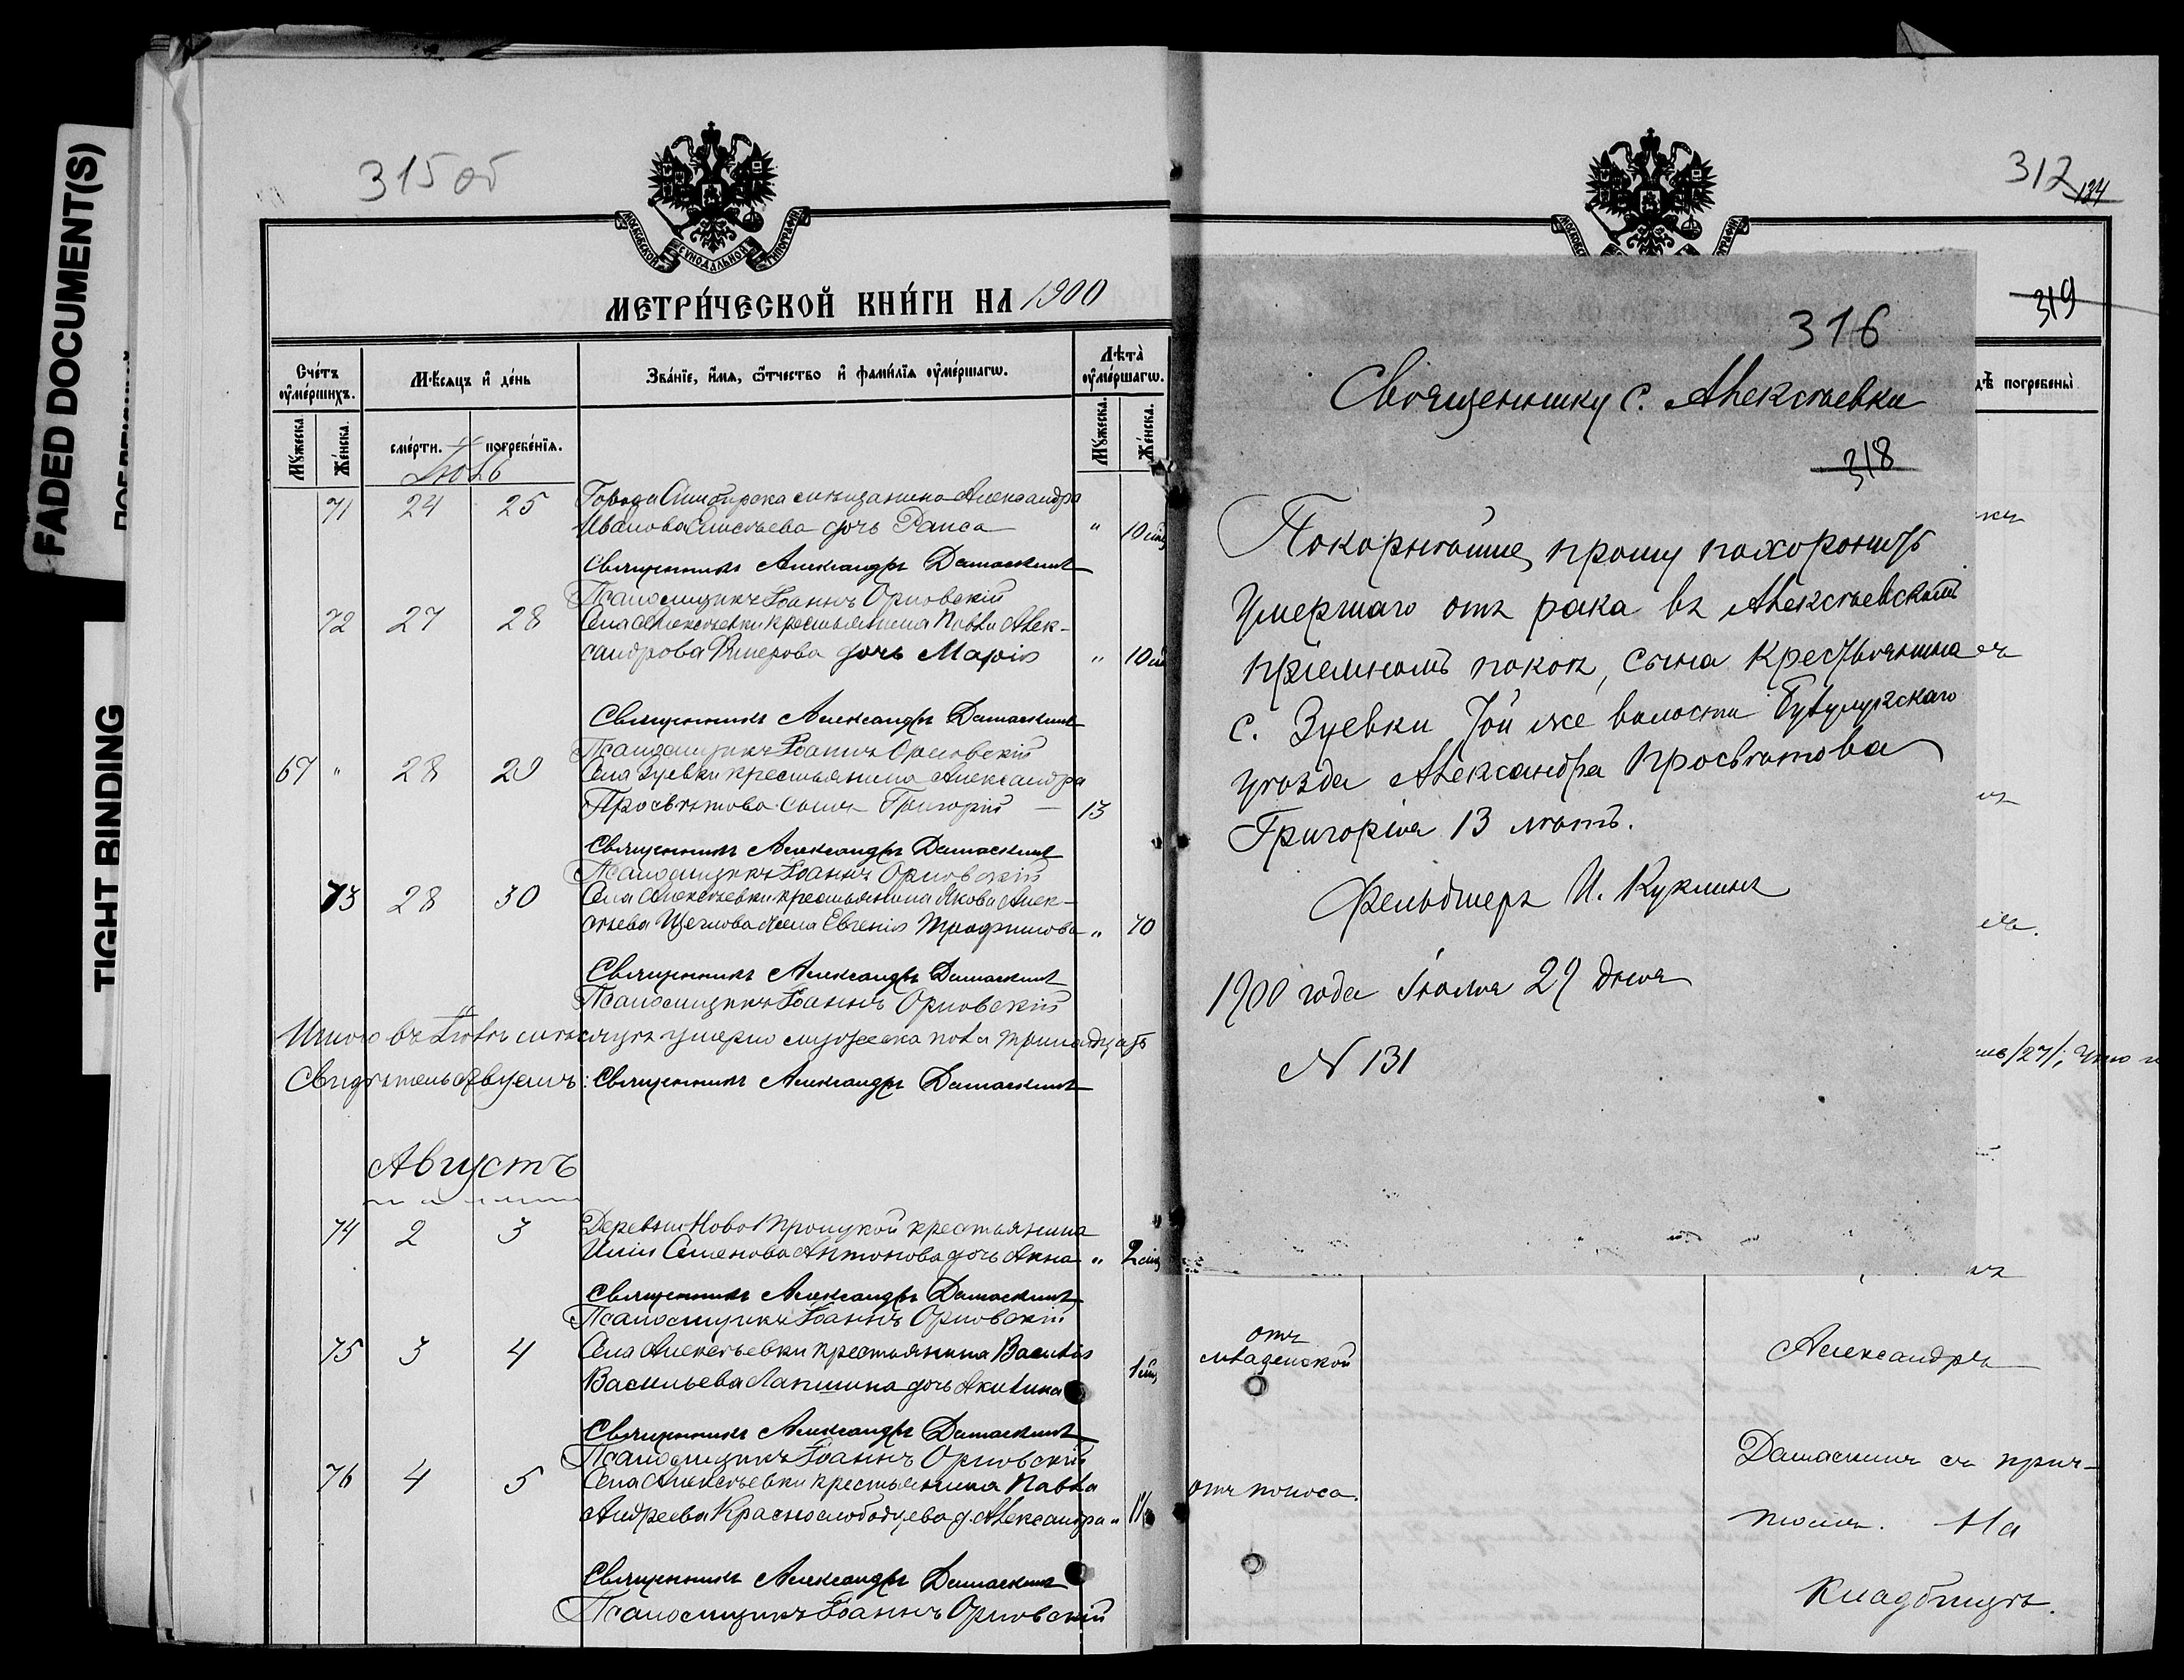 FADED DOCUMENT(S)
TIGHT BINDING
315 об
МОСКОВСКОЙ СѴНОДАЛЬНОЙ ТИПОГРАФІИ
МЕТРИ́ЧЕСКОЙ КНИ́ГИ НА 1900
Сче́тъ оу҆ме́ршихъ.
Мѣ́сяцъ и҆ де́нь
Зва́нїе, и҆́мя, ѻ҆́тчество и҆ фами́лїя оу҆ме́ршагѡ.
Лѣта̀ оу҆ме́ршагѡ.
Мꙋ́жеска.
Же́нска.
сме́рти.
погребе́нїя.
Мꙋ́жеска.
Же́нска.
Іюль
71 24 25 Города Симбирска мѣщанина Александра
Иванова Елисѣева дочь Раиса " 10 мѣс
Священникъ Александръ Дамаскинъ
Псаломщикъ Іоаннъ Орловскій
72 27 28 Села Алексѣевки крестьянина Павла Алек-
сандрова дочь Марія " 10
Священникъ Александръ Дамаскинъ
Псаломщикъ Іоаннъ Орловскій
67 " 28 29 Села Зуевки крестьянина Александра
Просвѣтова сынъ Григорій — 13
Священникъ Александръ Дамаскинъ
Псаломщикъ Іоаннъ Орловскій
73 28 30 Села Алексѣевки крестьянина Якова Алек-
сѣева Щеглова жена Евгенія Трофимова " 70
Священникъ Александръ Дамаскинъ
Псаломщикъ Іоаннъ Орловскій
Итого въ Іюлѣ мѣсяцѣ умерло мужеска пола тринадцать
Свидѣтельствуемъ: Священникъ Александръ Дамаскинъ
Августъ
74 2 3 Деревни Новотроицкой крестьянина
Иліи Семенова Антонова дочь Анна " 2 мѣс
Священникъ Александръ Дамаскинъ
Псаломщикъ Іоаннъ Орловскій
75 3 4 Села Алексѣевки крестьянина Василія
Васильева Лапшина дочь Акилина 1 мѣс
Священникъ Александръ Дамаскинъ
Псаломщикъ Іоаннъ Орловскій
76 4 5 Села Алексѣевки крестьянина Павла
Андреева Краснослободцева д. Александра "
Священникъ Александръ Дамаскинъ
Псаломщикъ Іоаннъ Орловскій
312
134
319
погребены̀
316
Священнику с. Алексѣевки
318
Покорнѣйше прошу похоронить
умершаго отъ рака въ Алексѣевскомъ
пріемномъ покоѣ, сына крестьянина
с. Зуевки той же волости Бузулукскаго
уѣзда Александра Просвѣтова
Григорія 13 лѣтъ.
Фельдшеръ И. Куклинъ
1900 года Іюля 29 дня
N 131
/27/;
отъ
младенской
Александръ
Дамаскинъ съ прич-
отъ поноса.
томъ. На
кладбищѣ.